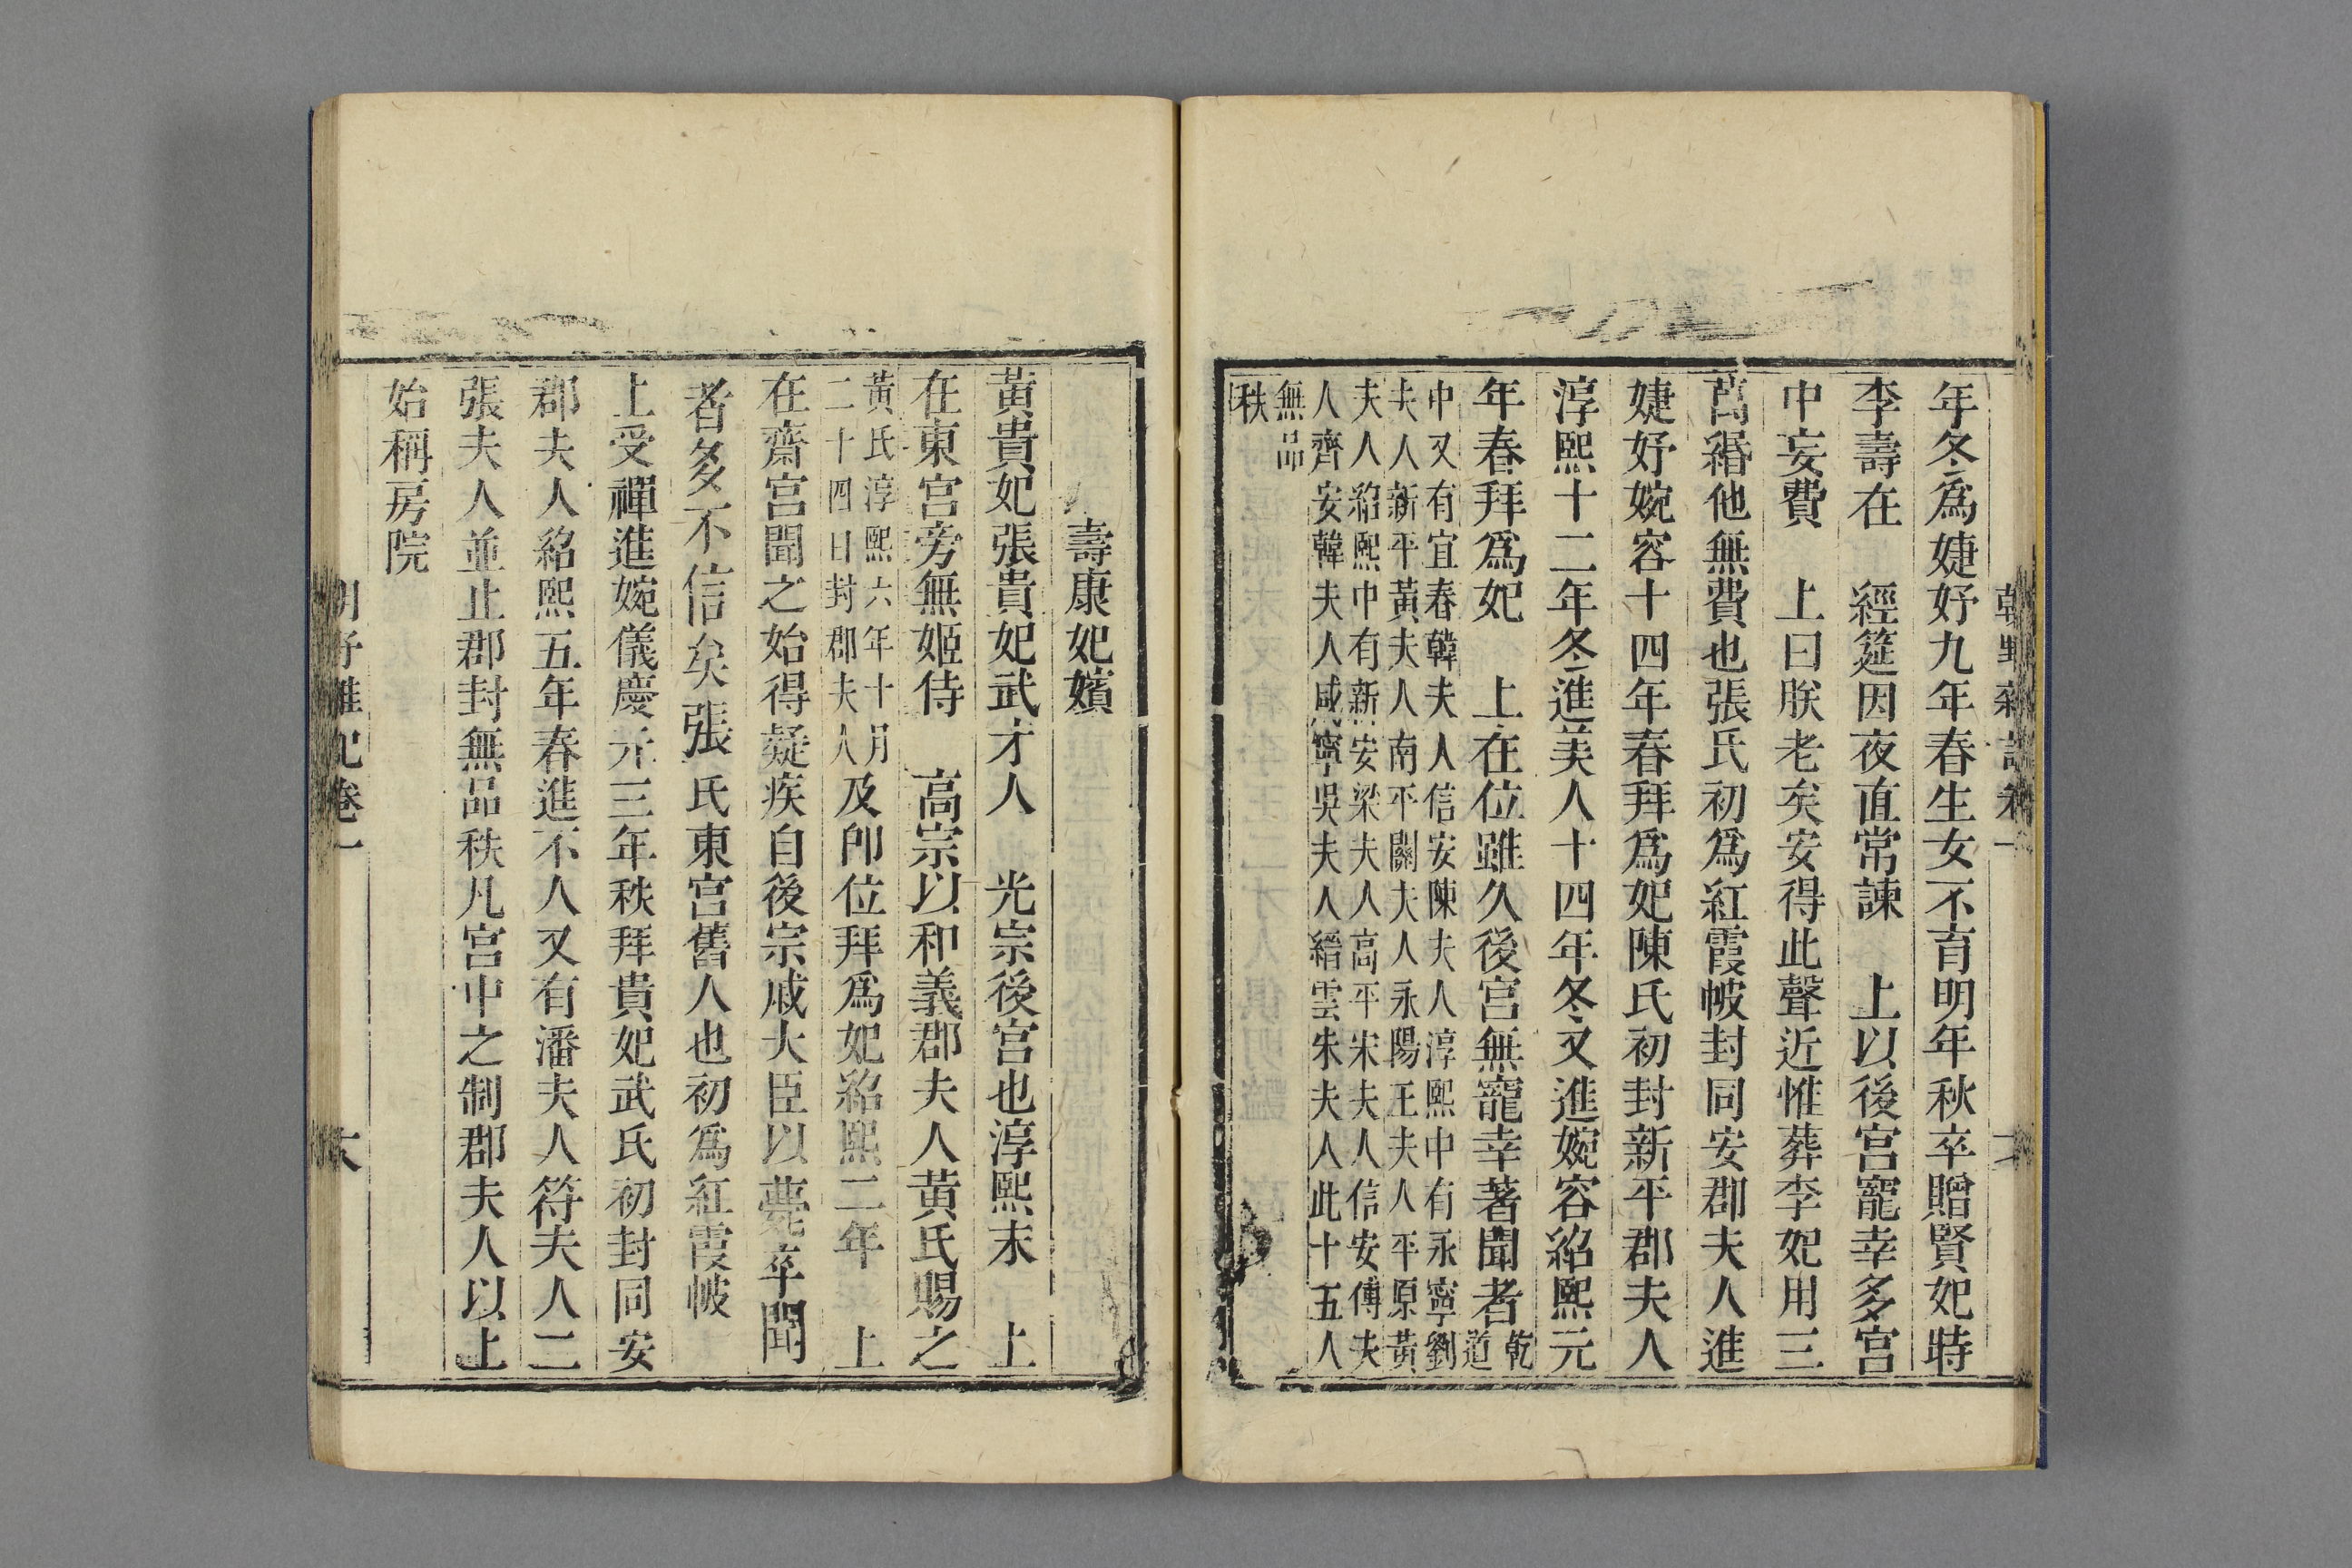 朝野雜記卷一
年冬爲婕妤九年春生女不育明年秋卒贈賢妃時
李壽在　經筵因夜直常諫　上以後宮寵幸多宮
中妄費　上曰朕老矣安得此聲近惟葬李妃用三
萬緡他無費也張氏初爲紅霞帔封同安郡夫人進
婕妤婉容十四年春拜爲妃陳氏初封新平郡夫人
淳熙十二年冬進美人十四年冬又進婉容紹熙元
年春拜爲妃　上在位雖久後宮無寵幸著聞者乾道
中又有宜春韓夫人信安陳夫人淳熙中有永寧劉
夫人新平黃夫人南平關夫人永陽王夫人平原黃
夫人紹熙中有新安梁夫人高平宋夫人信安傅夫
人齊安韓夫人咸寧吳夫人縉雲朱夫人此十五人
無品
秩
壽康妃嬪
黃貴妃張貴妃武才人　光宗後宮也淳熙末　上
在東宮旁無姬侍　高宗以和義郡夫人黃氏賜之
黃氏淳熙六年十月
二十四日封郡夫人
及卽位拜爲妃紹熙二年　上
在齋宮聞之始得疑疾自後宗戚大臣以薨卒聞
者多不信矣張氏東宮舊人也初爲紅霞帔
上受禪進婉儀慶元三年秋拜貴妃武氏初封同安
郡夫人紹熙五年春進不人又有潘夫人符夫人二
張夫人並止郡封無品秩凡宮中之制郡夫人以上
始稱房院
朝野雜記卷一
六